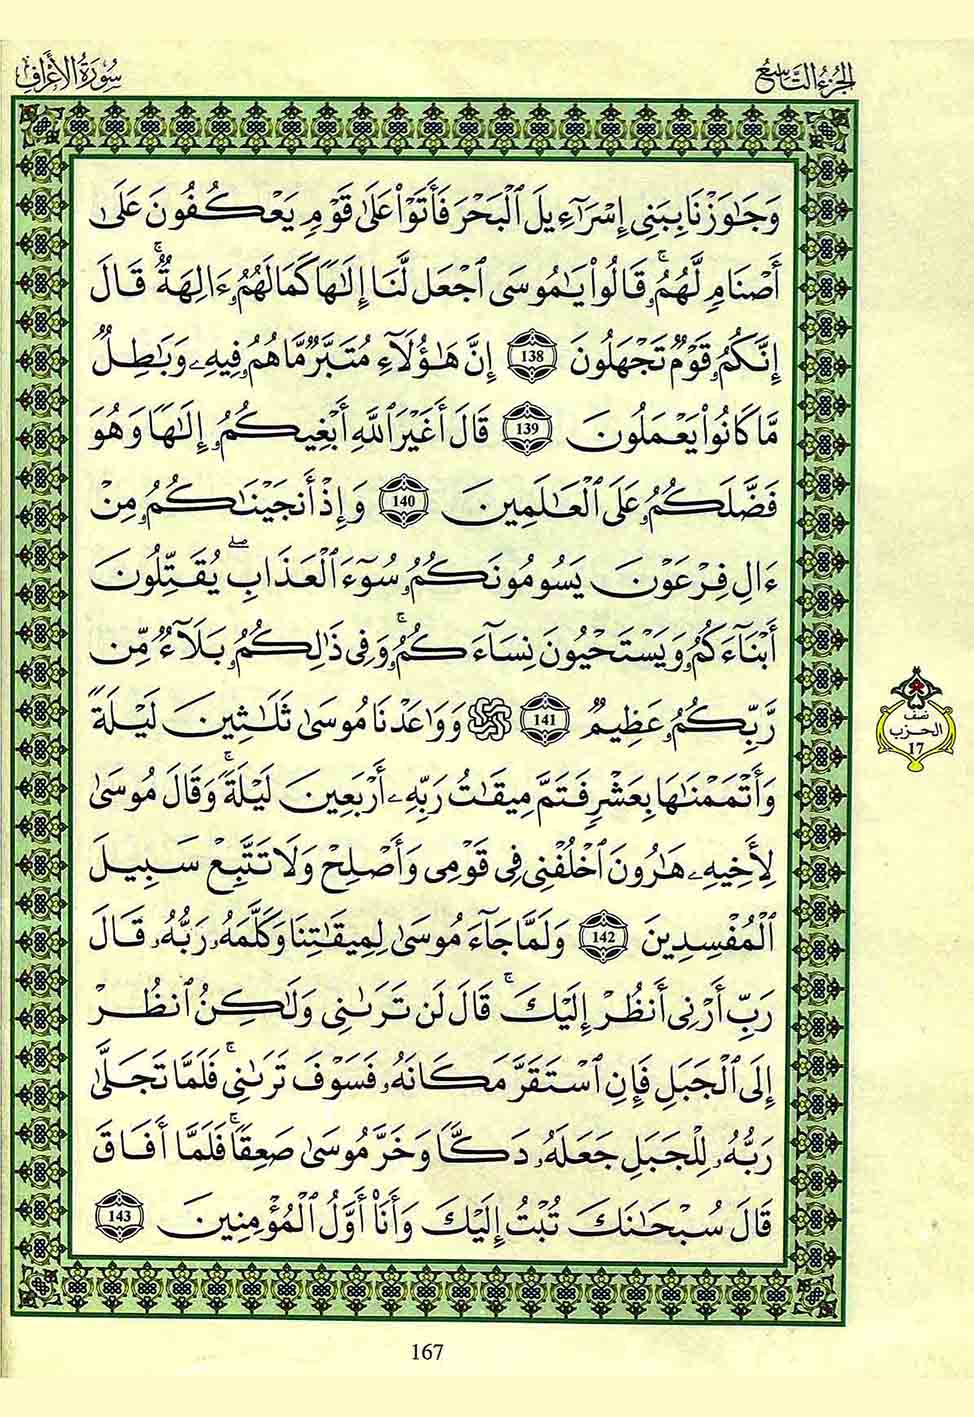 الجزء التاسع
سورة الأعراف
وَجَٰوَزْنَا بِبَنِىٓ إِسْرَآءِيلَ ٱلْبَحْرَ فَأَتَوْا۟ عَلَىٰ قَوْمٍ يَعْكُفُونَ عَلَىٰٓ
أَصْنَامٍ لَّهُمُۥۚ قَالُوا۟ يَٰمُوسَى ٱجْعَل لَّنَآ إِلَٰهًا كَمَا لَهُمُۥٓ ءَالِهَةٌۚ قَالَ
إِنَّكُمُۥ قَوْمٌ تَجْهَلُونَ 138 إِنَّ هَٰٓؤُلَآءِ مُتَبَّرٌ مَّا هُمُۥ فِيهِۦ وَبَٰطِلٌ
مَّا كَانُوا۟ يَعْمَلُونَ 139 قَالَ أَغَيْرَ ٱللَّهِ أَبْغِيكُمُۥٓ إِلَٰهًا وَهُوَ
فَضَّلَكُمُۥ عَلَى ٱلْعَٰلَمِينَ 140 وَإِذْ أَنجَيْنَٰكُمُۥ مِنْ
ءَالِ فِرْعَوْنَ يَسُومُونَكُمُۥ سُوٓءَ ٱلْعَذَابِۖ يُقَتِّلُونَ
أَبْنَآءَكُمُۥ وَيَسْتَحْيُونَ نِسَآءَكُمُۥۚ وَفِى ذَٰلِكُمُۥ بَلَآءٌ مِّن
رَّبِّكُمُۥ عَظِيمٌ 141 وَوَٰعَدْنَا مُوسَىٰ ثَلَٰثِينَ لَيْلَةً
وَأَتْمَمْنَٰهَا بِعَشْرٍ فَتَمَّ مِيقَٰتُ رَبِّهِۦٓ أَرْبَعِينَ لَيْلَةًۚ وَقَالَ مُوسَىٰ
لِأَخِيهِۦ هَٰرُونَ ٱخْلُفْنِى فِى قَوْمِى وَأَصْلِحْ وَلَا تَتَّبِعْ سَبِيلَ
ٱلْمُفْسِدِينَ 142 وَلَمَّا جَآءَ مُوسَىٰ لِمِيقَٰتِنَا وَكَلَّمَهُۥ رَبُّهُۥ قَالَ
رَبِّ أَرْنِىٓ أَنظُرْ إِلَيْكَۚ قَالَ لَن تَرَىٰنِى وَلَٰكِنُ ٱنظُرْ
إِلَى ٱلْجَبَلِ فَإِنِ ٱسْتَقَرَّ مَكَانَهُۥ فَسَوْفَ تَرَىٰنِىۚ فَلَمَّا تَجَلَّىٰ
رَبُّهُۥ لِلْجَبَلِ جَعَلَهُۥ دَكًّا وَخَرَّ مُوسَىٰ صَعِقًاۚ فَلَمَّآ أَفَاقَ
قَالَ سُبْحَٰنَكَ تُبْتُ إِلَيْكَ وَأَنَا۠ أَوَّلُ ٱلْمُؤْمِنِينَ 143
نصف
الحزب
17
167